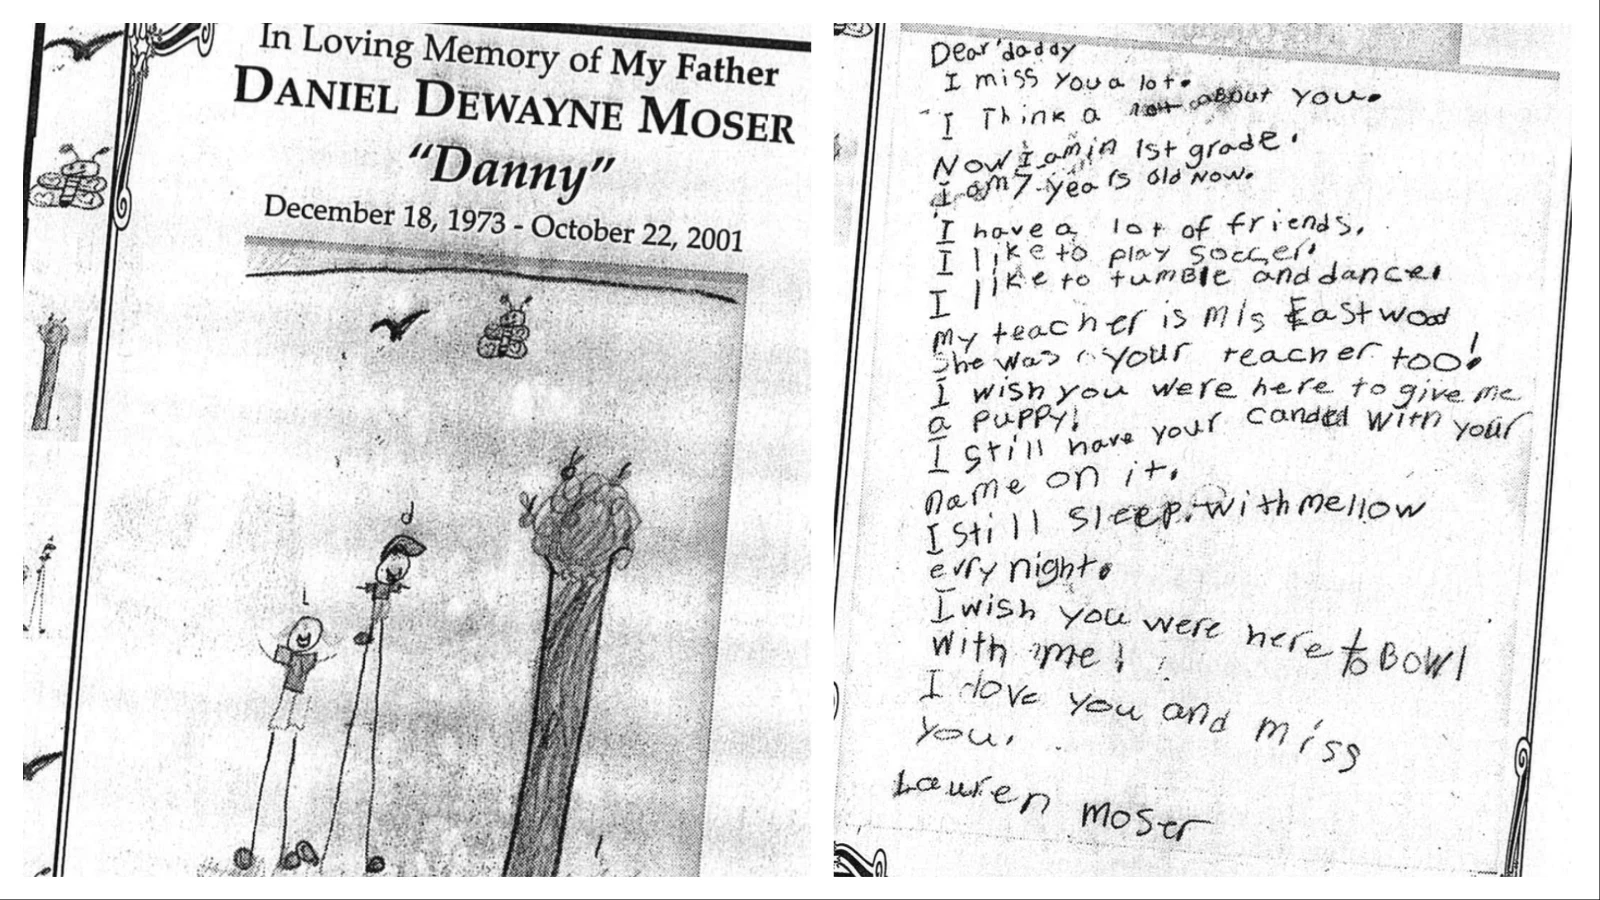 In Loving Memory of My Father
DANIEL DEWAYNE MOSER
“Danny”
December 18, 1973 - October 22, 2001
d
L
Dear daddy
I miss you a lot.
I Think a lot about you.
Now I am in 1st grade.
I am 7 years old now.
I have a lot of friends.
I like to play soccer.
I like to tumble and dance.
My teacher is mis Eastwood
She was your teacher too!
I wish you were here to give me
a puppy!
I still have your canded with your
name on it.
I still sleep with mellow
evry night.
I wish you were here to BOWl
with me!
I love you and miss
you.
Lauren moser